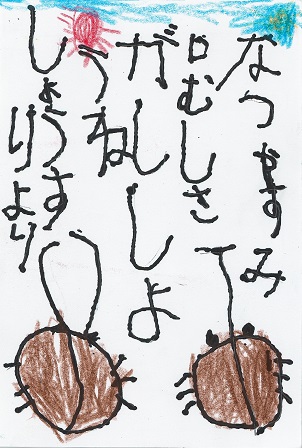 なつやすみ
むしさ
がししよ
うね
しょうす
りより